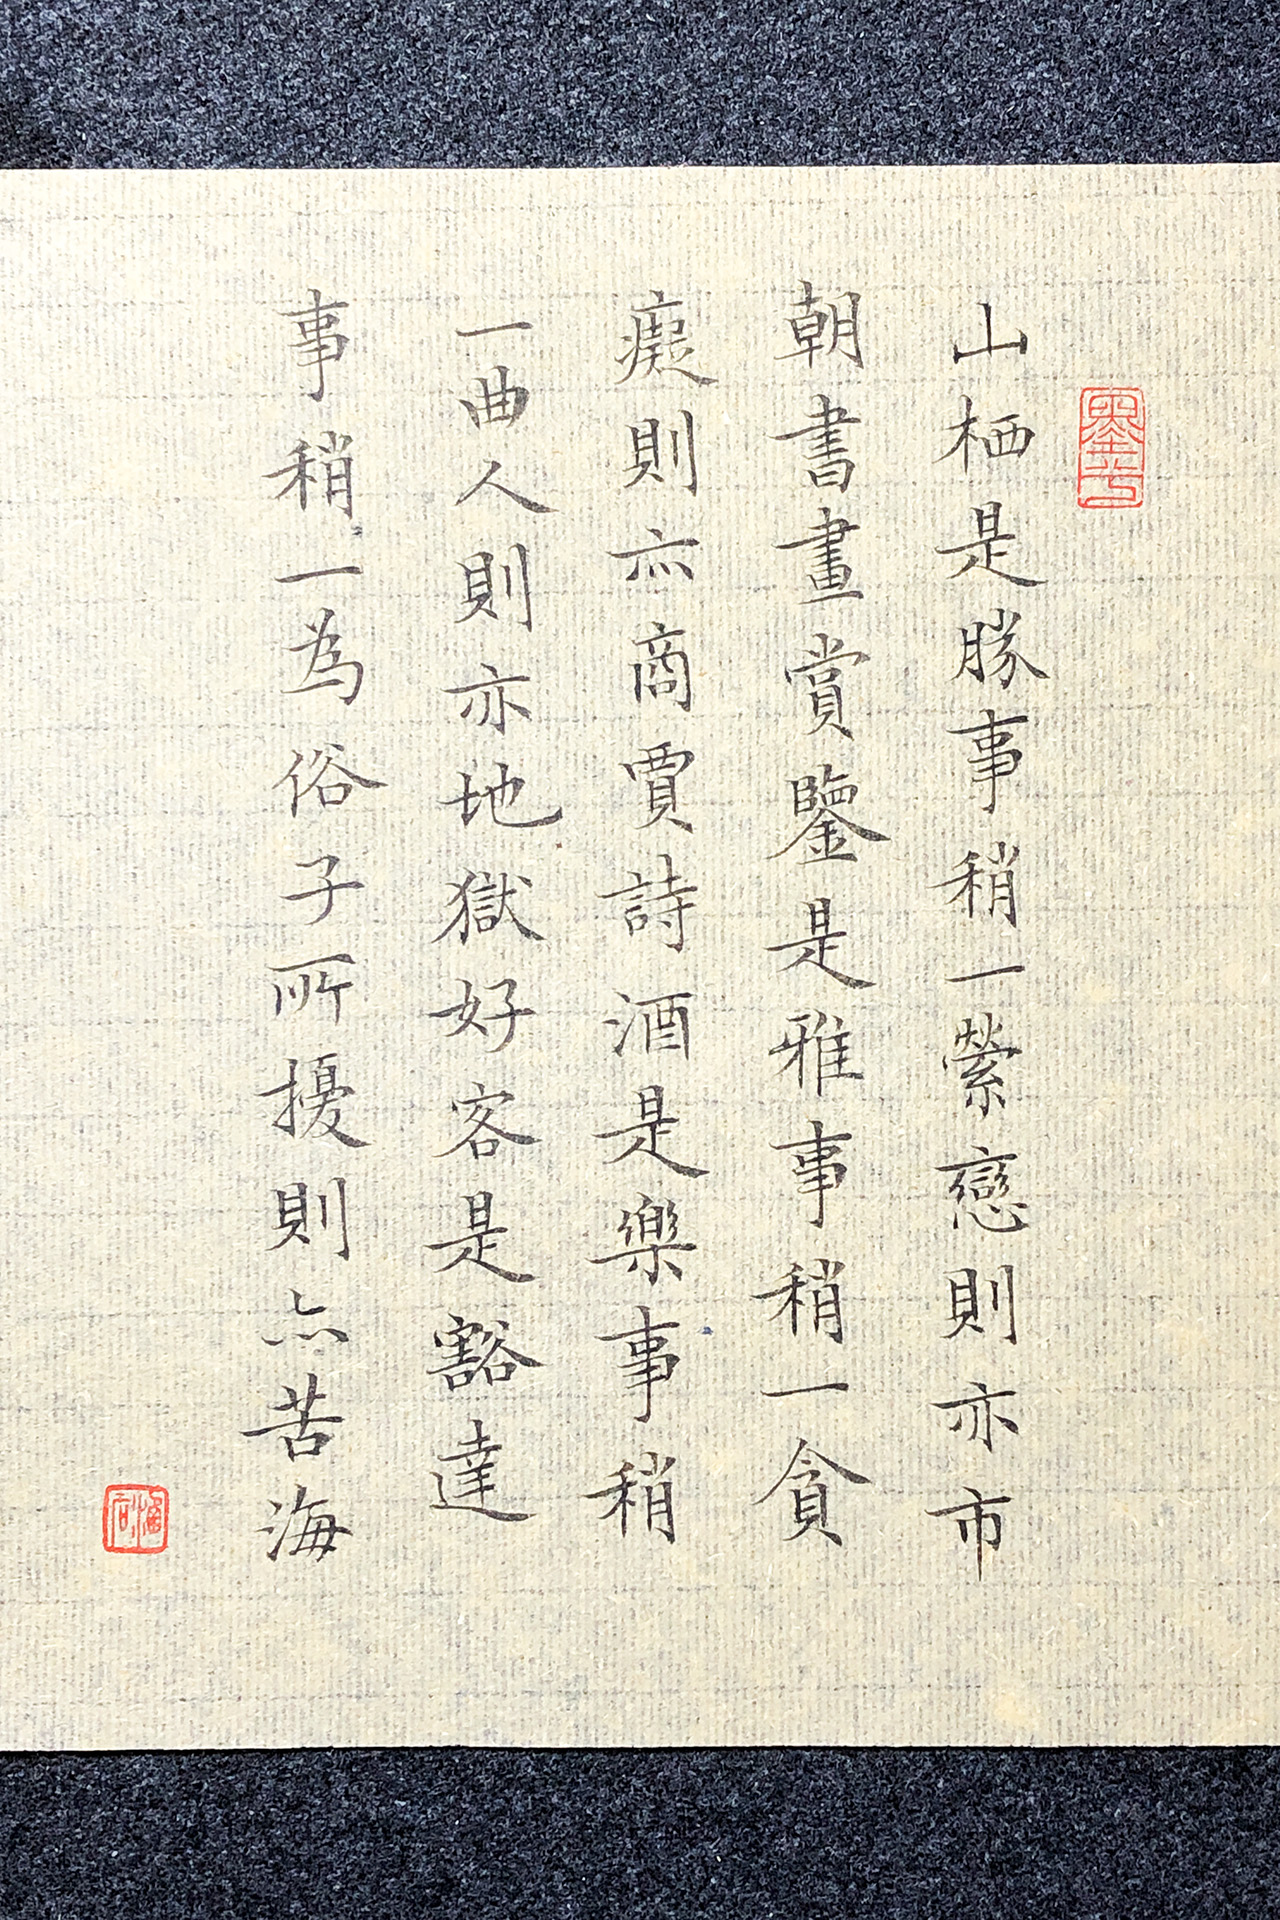 山栖是勝事稍一縈戀則亦市
朝書畫賞鑒是雅事稍一貪
癡則亦商賈詩酒是樂事稍
一曲人則亦地獄好客是豁達
事稍一為俗子所擾則亦苦海